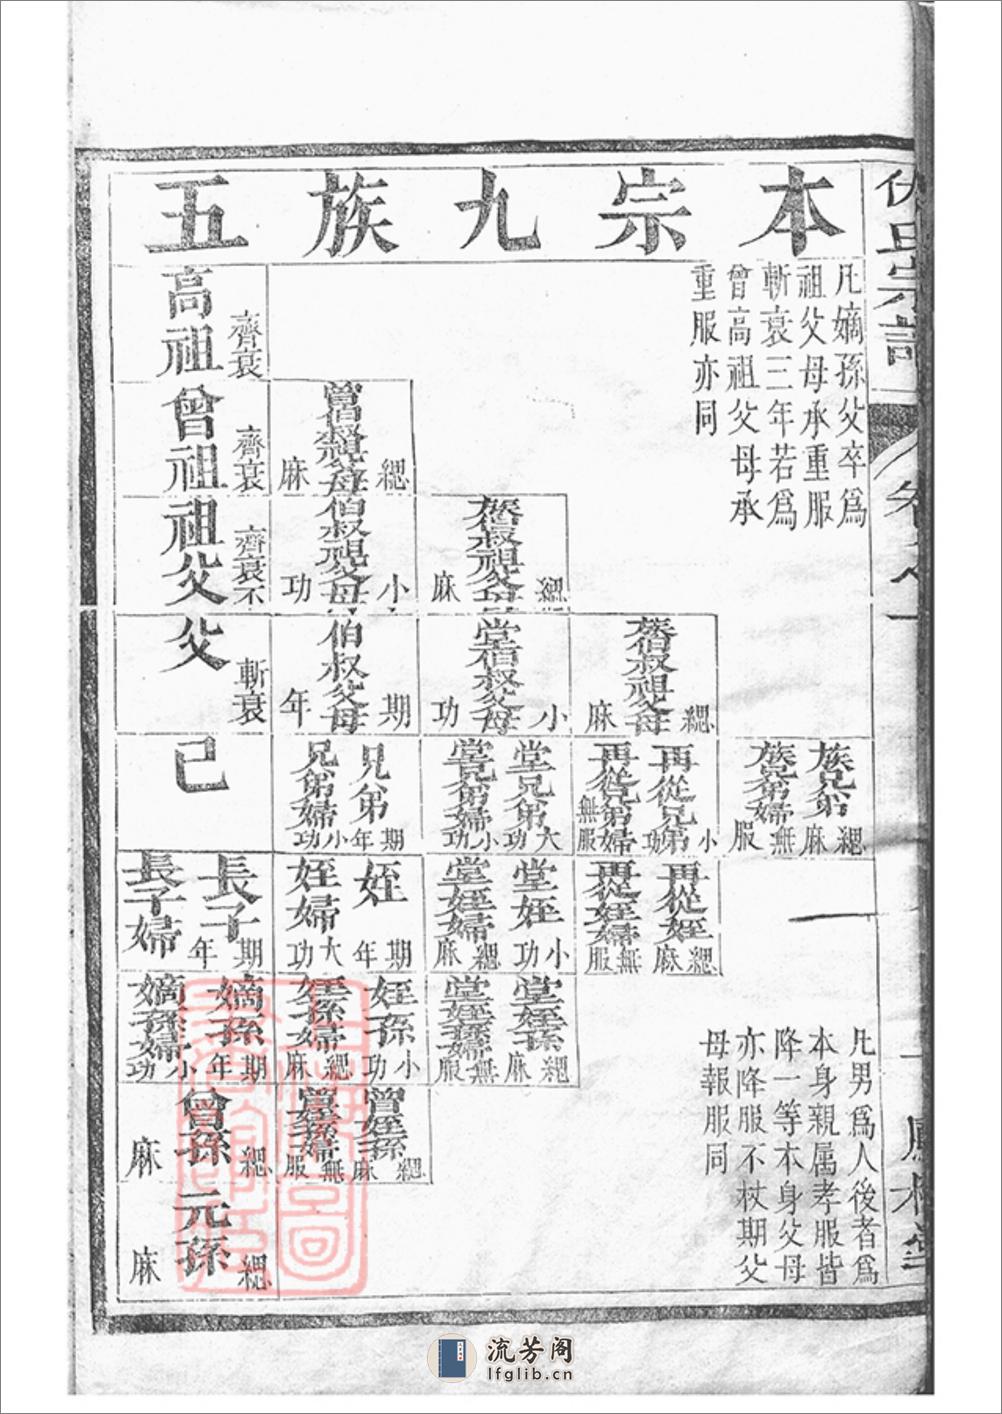 本宗九族五
凡嫡孫父卒為
祖父母承重服
斬衰三年若為
曾高祖父母承
重服亦同
高祖 齊衰
曾祖 齊衰
曾伯叔祖父母 緦麻
祖父 齊衰不
伯叔祖父母 小功
族伯叔祖父母 緦麻
父 斬衰
伯叔父母 期年
堂伯叔父母 小功
族伯叔祖父母 緦麻
己
兄弟 期年
兄弟婦 小功
堂兄弟 大功
堂兄弟婦 小功
再從兄弟 小功
再從兄弟婦 無服
族兄弟 緦麻
族兄弟婦 無服
長子 期年
長子婦 年
姪 期年
姪婦 大功
堂姪 小功
堂姪婦 緦麻
再從姪 緦麻
再從姪婦 無服
嫡孫 期年
嫡孫婦 小功
姪孫 小功
姪孫婦 緦麻
堂姪孫 緦麻
堂姪孫婦 無服
曾孫 緦麻
曾姪孫 緦麻
曾姪孫婦 無服
元孫 緦麻
凡男為人後者為
本身親属孝服皆
降一等本身父母
亦降服不杖期父
母報服同
流芳阁
lfglib.cn